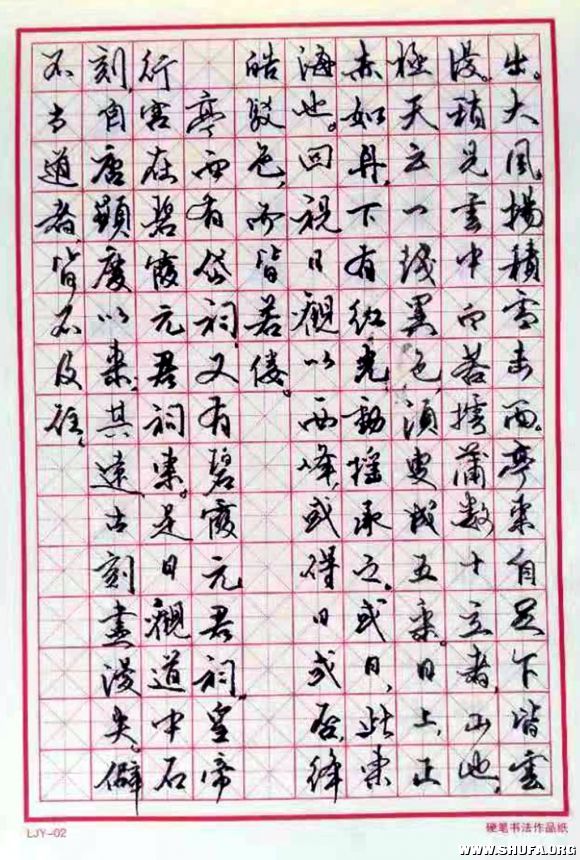 出。大風揚積雪击面。亭東自足下皆雲
漫。稍見雲中白若摴蒲數十立者,山也。
極天云一线異色,須臾成五采。日上,正
赤如丹,下有红光動搖承之。或曰,此東
海也。回視日觀以西峰,或得日或否,绛
皓駁色,而皆若僂。
亭西有岱祠,又有碧霞元君祠。皇帝
行宫在碧霞元君祠東。是日觀道中石
刻,自唐顯慶以來,其遠古刻盡漫失。僻
不当道者,皆不及往。
LJY-02
硬笔书法作品纸
WWW.SHUFA.ORG